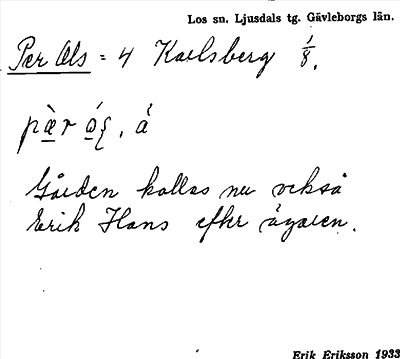 Los sn. Ljusdals tg. Gävleborgs län.
Per Ols = 4 Karlsberg 1/8.
pæ̀r ó̱ʃ, á
Gården kallas nu också
Erik Hans efter ägaren.
Erik Eriksson 1933